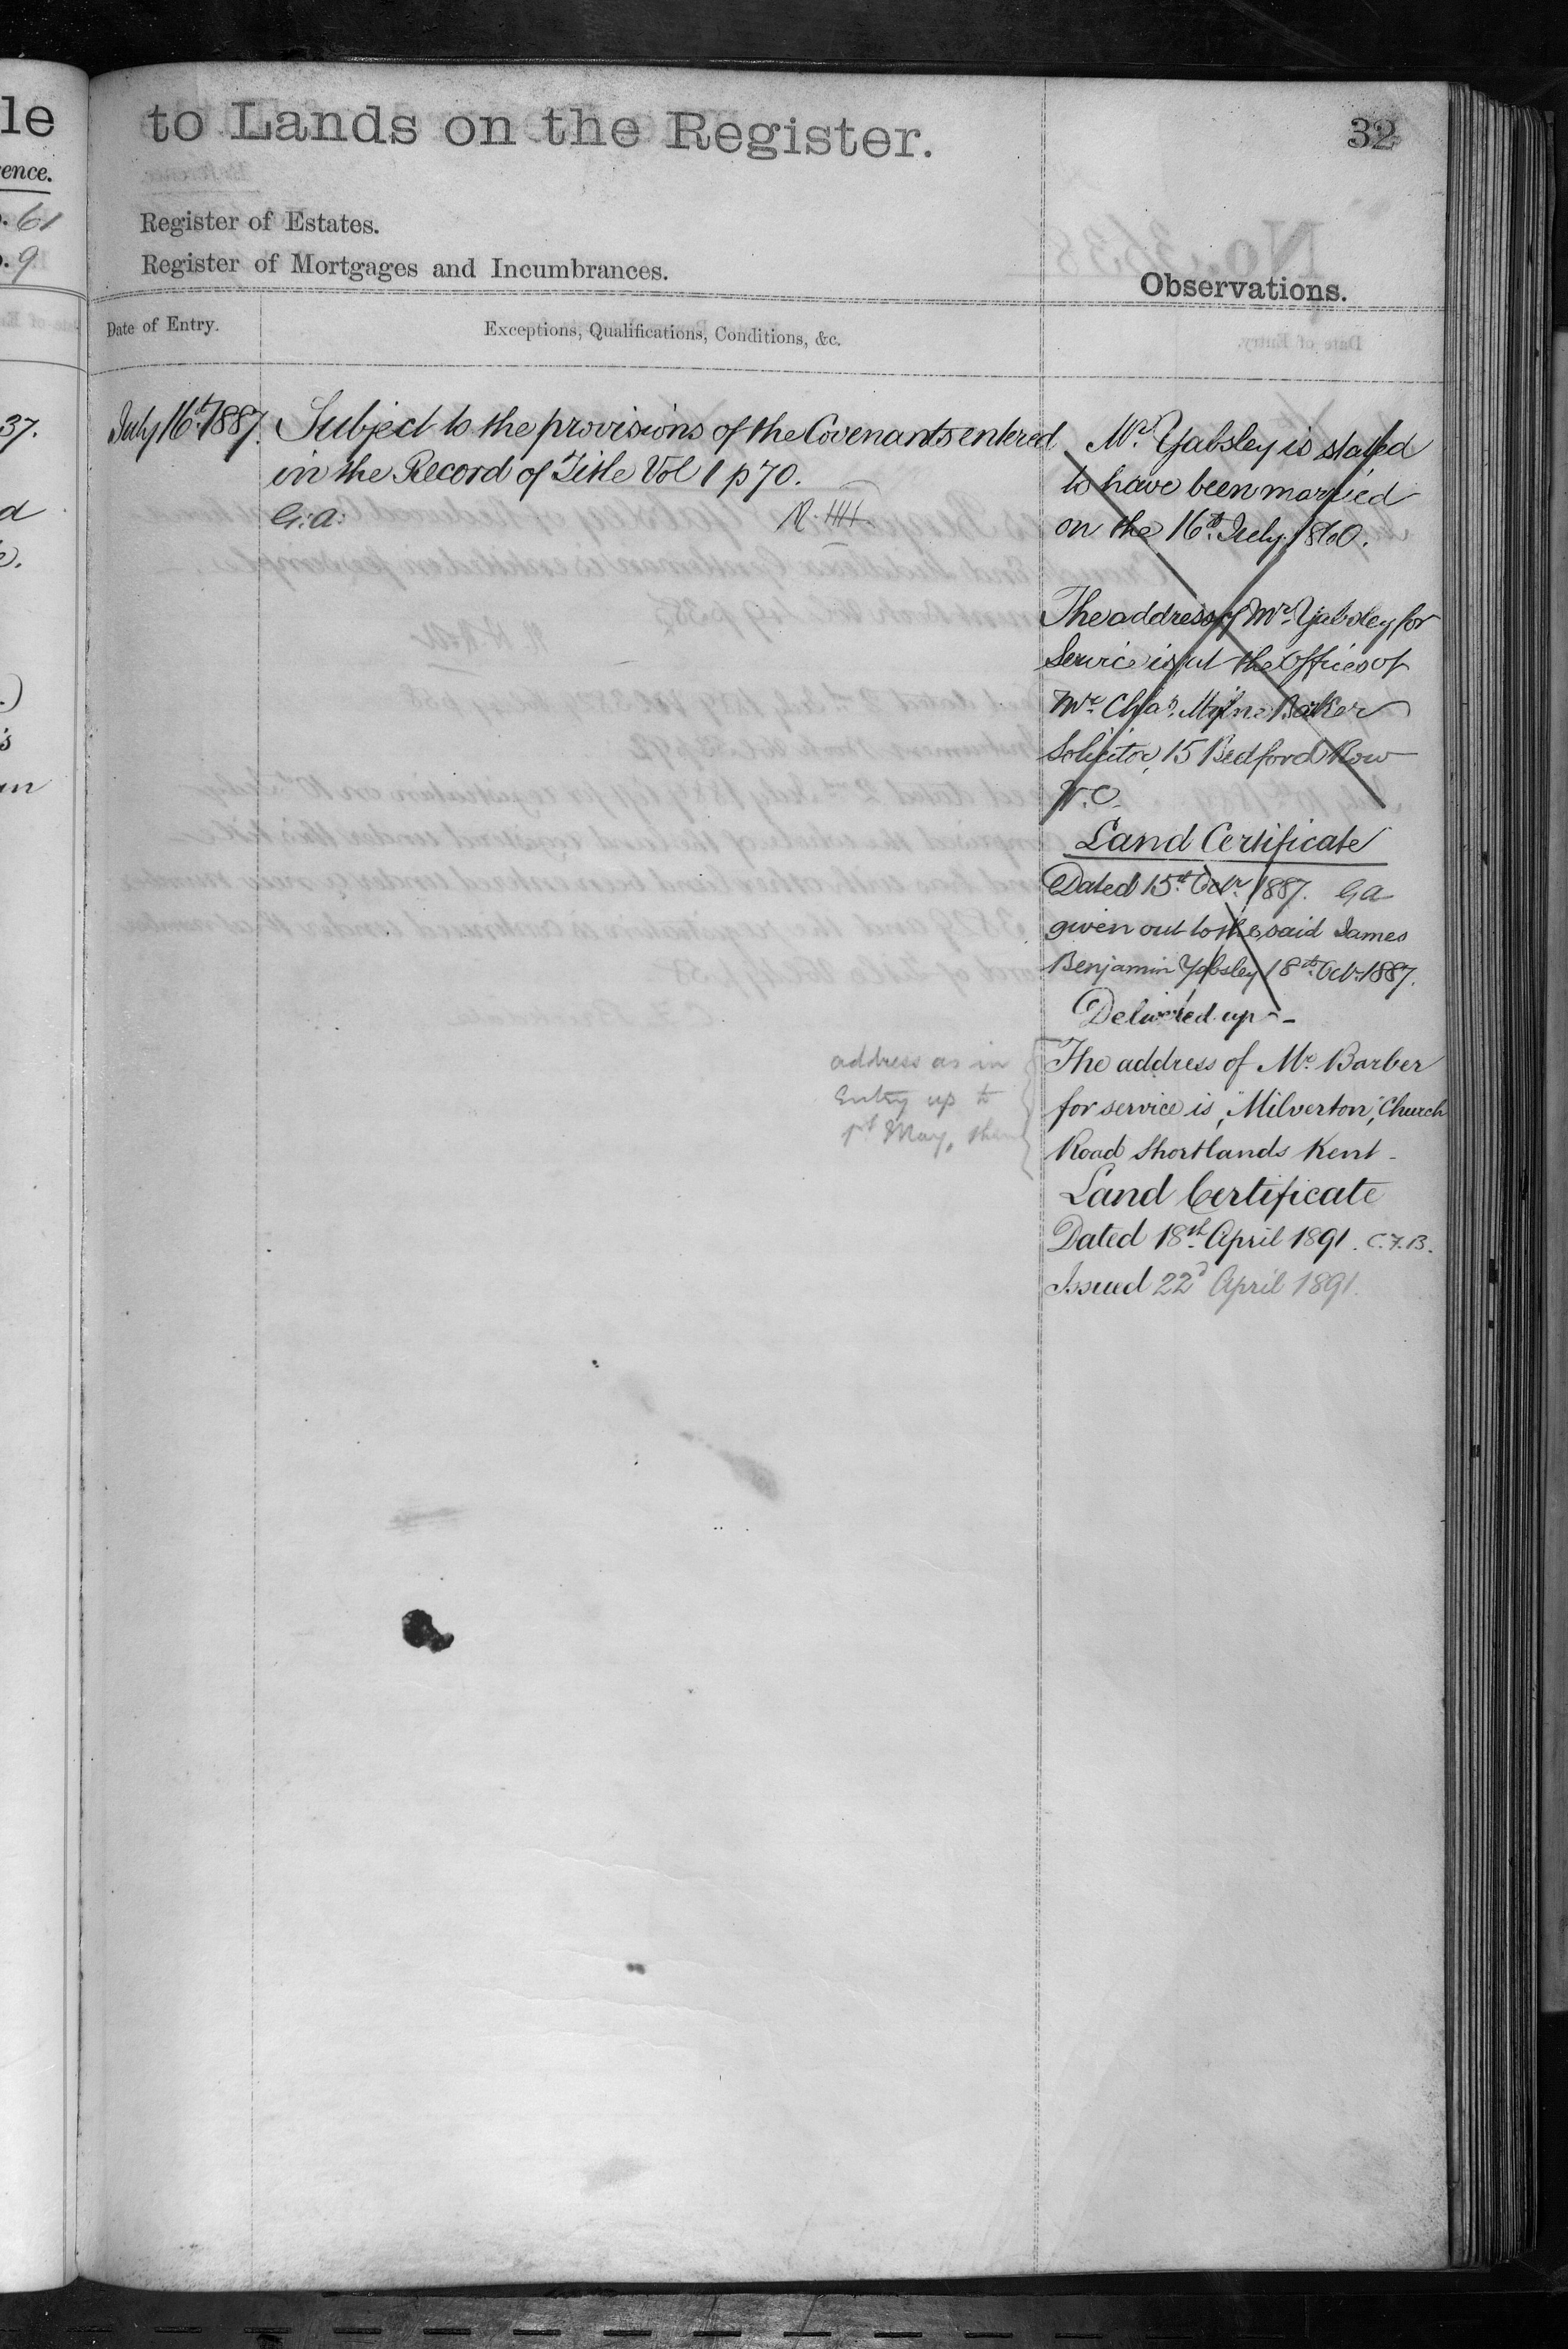 le
ence.
. 61
. 9
37.
d
e.
.)
s
an
to Lands on the Register.
32
Register of Estates.
Register of Mortgages and Incumbrances.
Observations.
Date of Entry.
Exceptions, Qualifications, Conditions, &c.
July 16th 1887.
Subject to the provisions of the Covenants entered
in the Record of Title Vol 1 p 70.
G: A:
Mr. Yabsley is stated
to have been married
on the 16th July 1860.
The address of Mr. Yabsley for
Service is at the Offices of
Mr. Chas. Mylne Barker
Solicitor, 15 Bedford Row
W.C.
Land Certificate
Dated 15th Octr. 1887. GA
given out to the said James
Benjamin Yabsley 18th Octr. 1887.
Delivered up -
address as in
Entry up to
1st May, then
The address of Mr. Barber
for service is, "Milverton", Church
Road Shortlands Kent -
Land Certificate
Dated 18th April 1891. C.F.B.
Issued 22d April 1891.